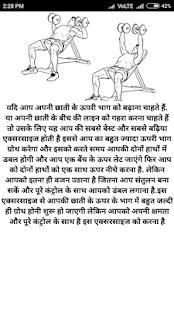 2:28 PM
यदि आप अपनी छाती के ऊपरी भाग को बढ़ाना चाहते हैं.
या अपनी छाती के बीच की लाइन को गहरा करना चाहते हैं
तो उसके लिए यह आप की सबसे बेस्ट और सबसे बढ़िया
एक्सरसाइज होती है इससे आप का बहुत ज्यादा ऊपरी भाग
ग्रोथ करेगा और इसको करते समय आपकी दोनों हाथों में
डंबल होगी और आप एक बेंच के ऊपर लेट जाएंगे फिर आप
को दोनों हाथों को एक साथ ऊपर नीचे करना है. लेकिन
आपको इतना ही वजन उठाना है जितना आप संतुलन बना
सकें और पूरे कंट्रोल के साथ आपको डंबल लगाना है.इस
एक्सरसाइज से आपकी छाती के ऊपर के भाग में बहुत जल्दी
ही ग्रोथ होनी शुरू हो जाएगी लेकिन आपको अपनी क्षमता
और पूरे कंट्रोल के साथ है इस एक्सरसाइज को करना है